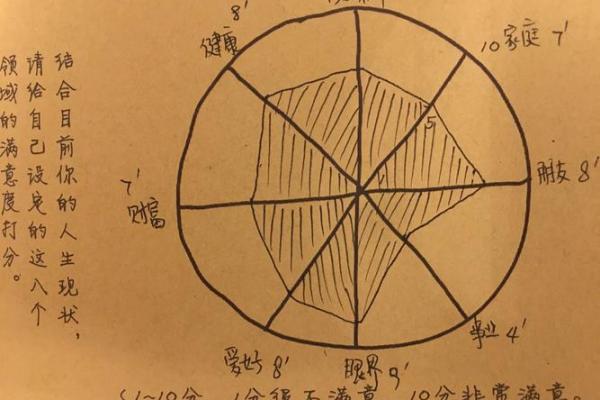 8'
健康
10
家庭 7'
5
朋友 8'
7'
财富
事业 4'
爱好 8'
眼界 9'
结合目前你的人生现状，
请给自己设定的这八个
领域的满意度打分。
(1~10分 1分很不满意 10分非常满意。